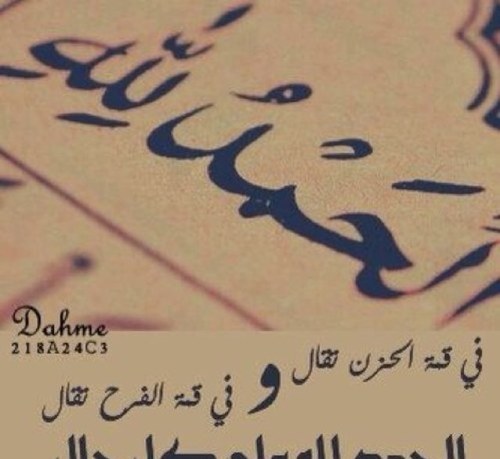 الحَمْدُ لِلّٰهِ
Dahme
218A24C3
في قمة الحزن تقال
و
في قمة الفرح تقال